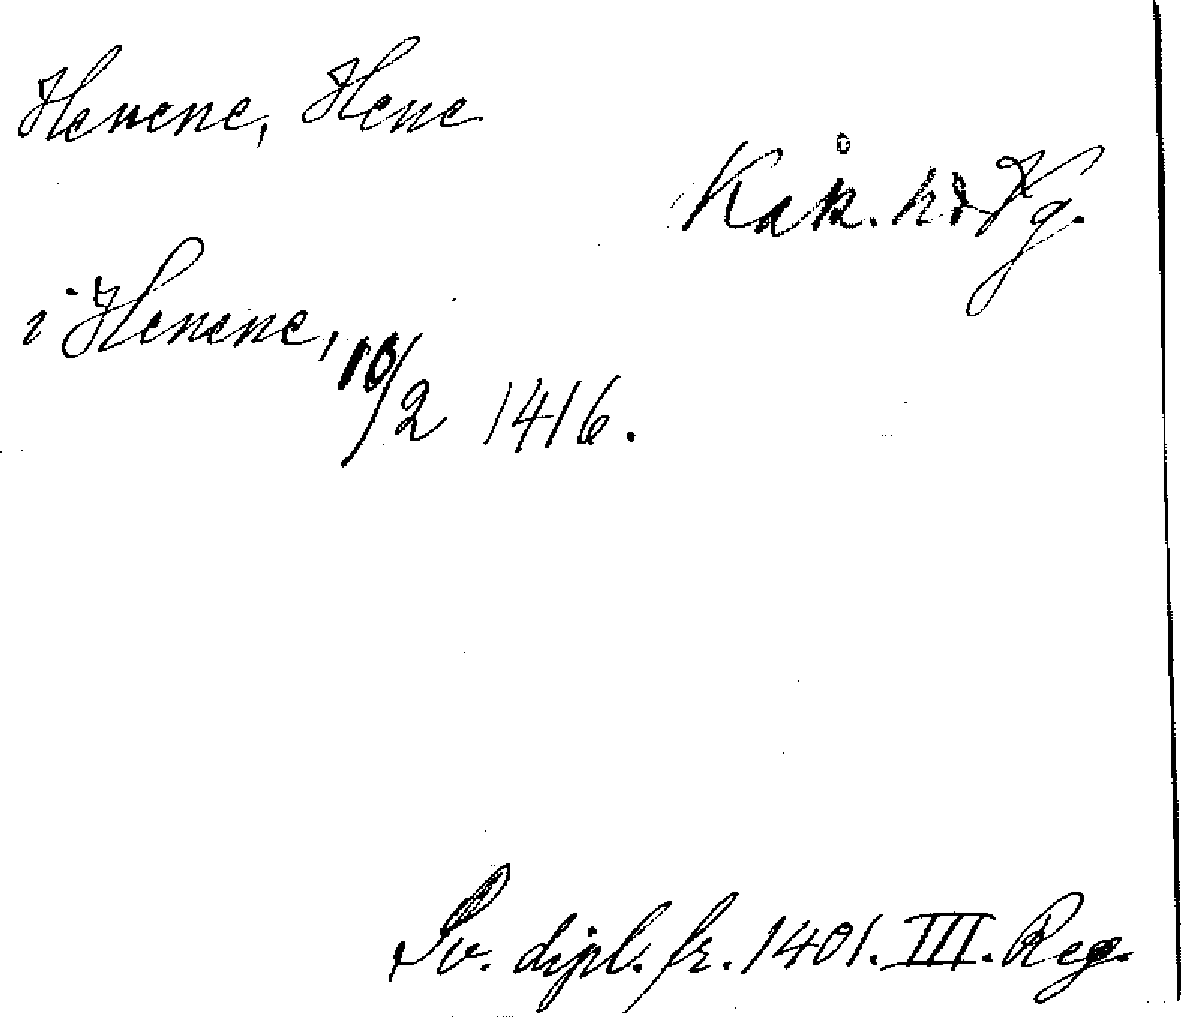 Henene, Hene
Kåk. hd Vg.
i Henene,
10/2 1416.
Sv. dipl. fr. 1401. III. Reg.